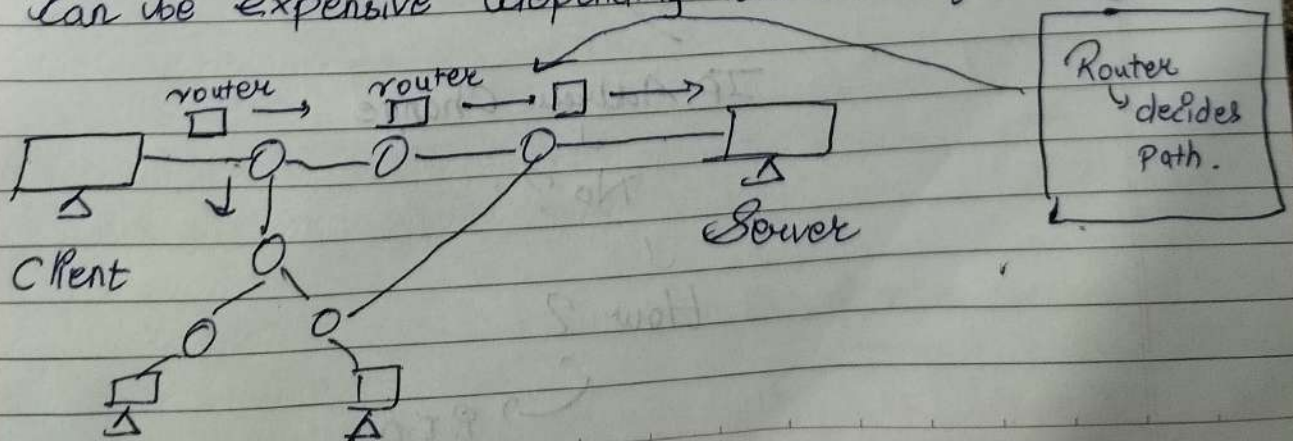 can be expensive depending
router
router
Router
decides
Path.
Server
Client